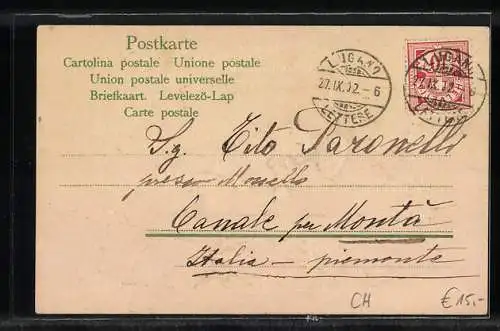 Postkarte
Cartolina postale Unione postale
Union postale universelle
Briefkaart. Levelező-Lap
Carte postale
LUGANO
27.IX.02.-6
LETTERE
LUGANO
27.IX.02
LETTERE
Sig. Tito Paronelli
presso Morello
Canale per Montà
Italia - piemonte
CH
€15,-